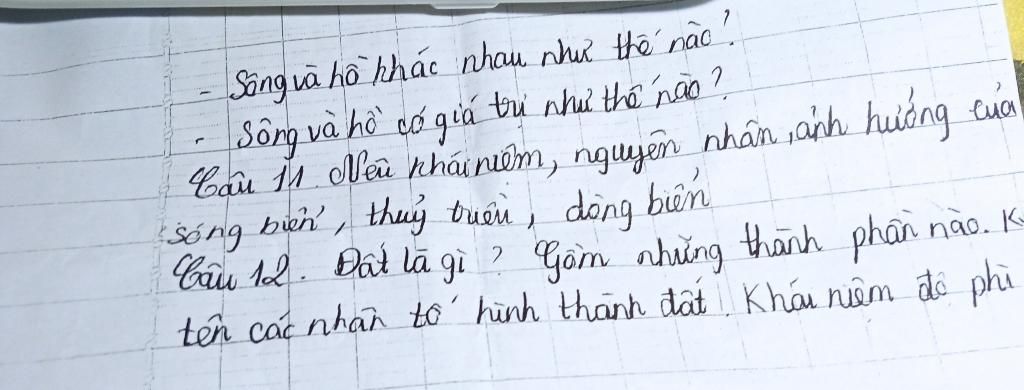 - Sông và hồ khác nhau như thế nào?
- Sông và hồ có giá trị như thế nào?
Câu 11. Nêu khái niệm, nguyên nhân, ảnh hưởng của
sóng biển, thuỷ triều, dòng biển
Câu 12. Đất là gì? Gồm những thành phần nào. K
tên các nhân tố hình thành đất. Khái niệm độ phì